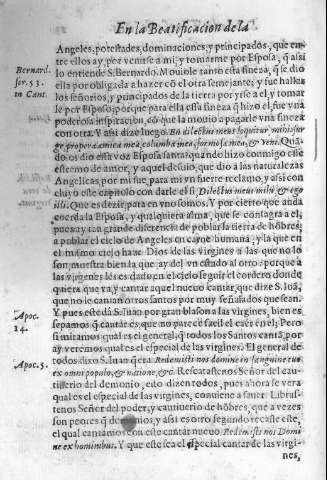 En la Beatificacion de la
Angeles, potestades, dominaciones, y principados, que en-
tre ellos ay, por venirse a mi, y tomarme por Esposa, q̃ assi
Bernard. ser. 53. in Cant.
lo entiende S. Bernardo. Mouiole tanto esta fineza, q̃ se dio
ella por obligada a hazer cõ el otra semejante, y fue hallar
los señorios, y principados de la tierra por yrse a el, y tomar
le por Esposo, porque para ella esta fineza q̃ hizo el, fue vna
poderosa inspiraciõ, cõ que la mouio a pagarle vna fineza
con otra. Y assi dize luego. En dilectus meus loquitur mihi, sur
ge, propera amica mea, columba mea, formosa mea, & veni. Quã-
do os dio essa voz Esposa santa? quando hizo conmigo esse
estremo de amor, y aquel desuio, que dio a las naturalezas
Angelicas, por mi fue, para mi vn fuerte reclamo, y assi con
cluyo este capitulo con darle el si Dilectus meus mihi, & ego
illi. Que es dezir, para en vno somos. Y por cierto que anda
cuerda la Esposa, y qualquiera alma, que se consagra a el,
pues ay tan grande diferencia de poblar la tierra de hõbres,
a poblar el cielo de Angeles en carne humana; y la que en
el mismo cielo haze Dios de las virgines a las que no lo
son, muestra bien la que ay del vn estado al otro: porque a
las virgines les es dado en el cielo seguir el cordero donde
quiera que va, y cantar aquel nuevo cantar, que dize S. Iuã,
que no le cantan otros santos por muy señalados que sean.
Apoc. 14.
Y pues esto dà S. Iuan por gran blason a las virgines, bien es
sepamos q̃ cantar es, que no parece facil el caer en el; Pero
si miramos qual es el general, q̃ todos los Santos cantã, por
ay veremos qual es el especial de las virgines. El general de
Apoc. 5.
todos dixo S. Iuan q̃ era Redemisti nos domine in sanguine tuo
ex omni populo, & natione, &c. Rescatastenos Señor del cau-
tiuerio del demonio, esto dizen todos, pues ahora se vera
qual es el especial de las virgines, conviene a saver. Librás-
tenos Señor del poder, y cautiuerio de hõbres, que a vezes
son peores q̃ demonios, y assi es otro segundo rescate este,
el qual cantamos con este cantar nueuo. Redemisti nos Domi-
ne ex hominibus. Y que este sea el especial cantar de las virgi-
nes,